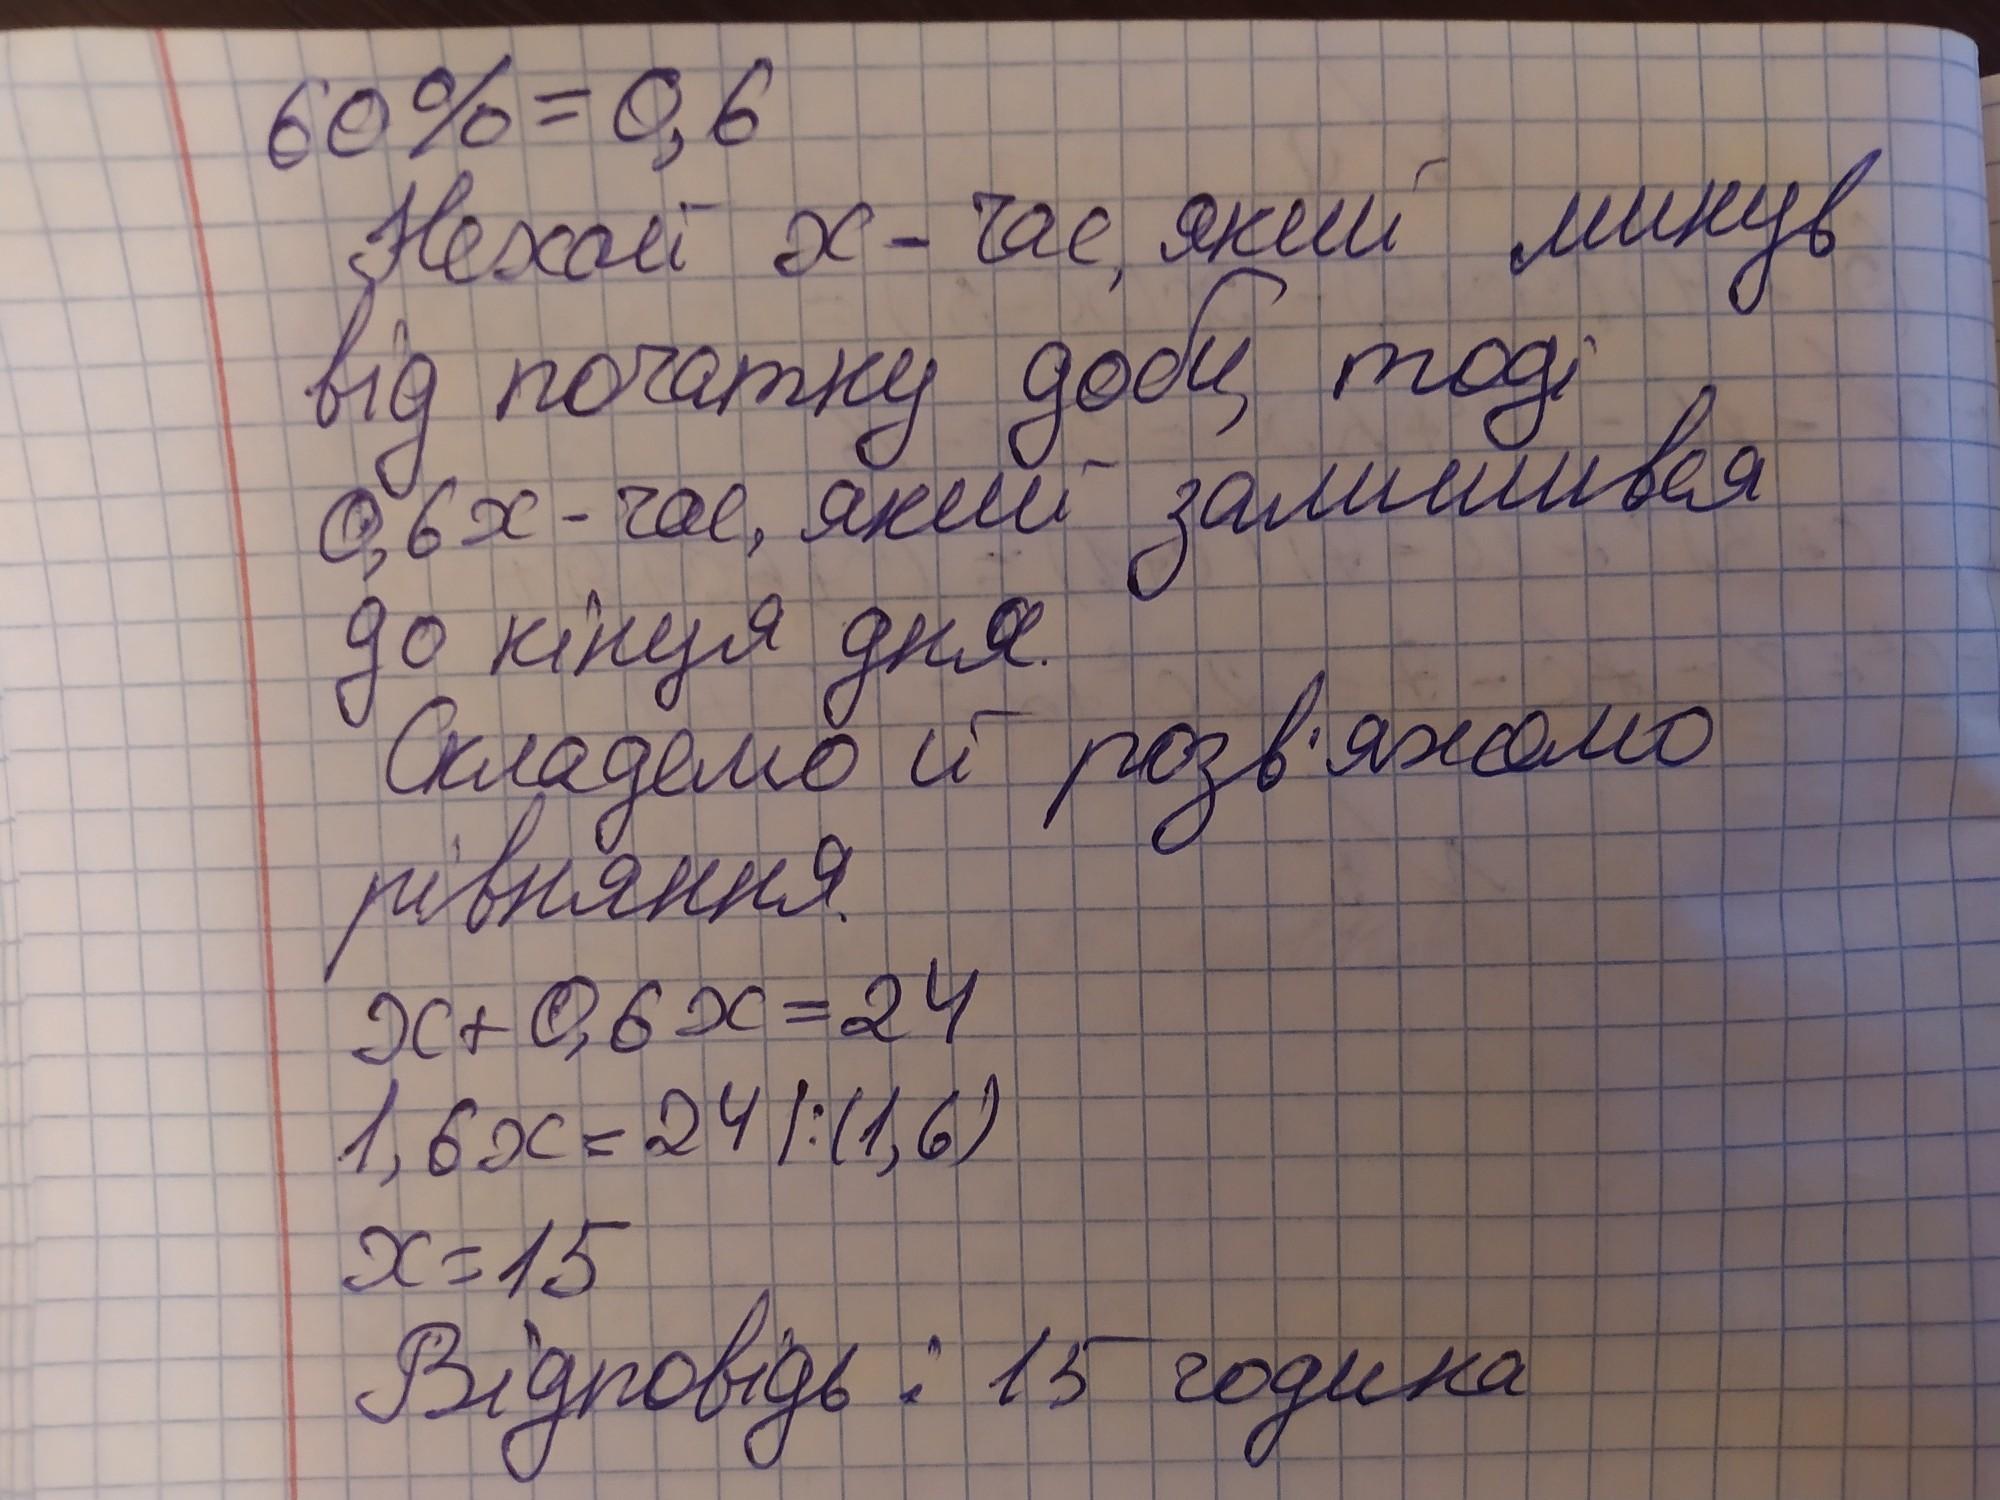 60% = 0,6
Нехай x - час, який минув
від початку доби, тоді
0,6x - час, який залишився
до кінця дня.
Складемо й розв'яжемо
рівняння.
x + 0,6x = 24
1,6x = 24 |:(1,6)
x = 15
Відповідь: 15 година